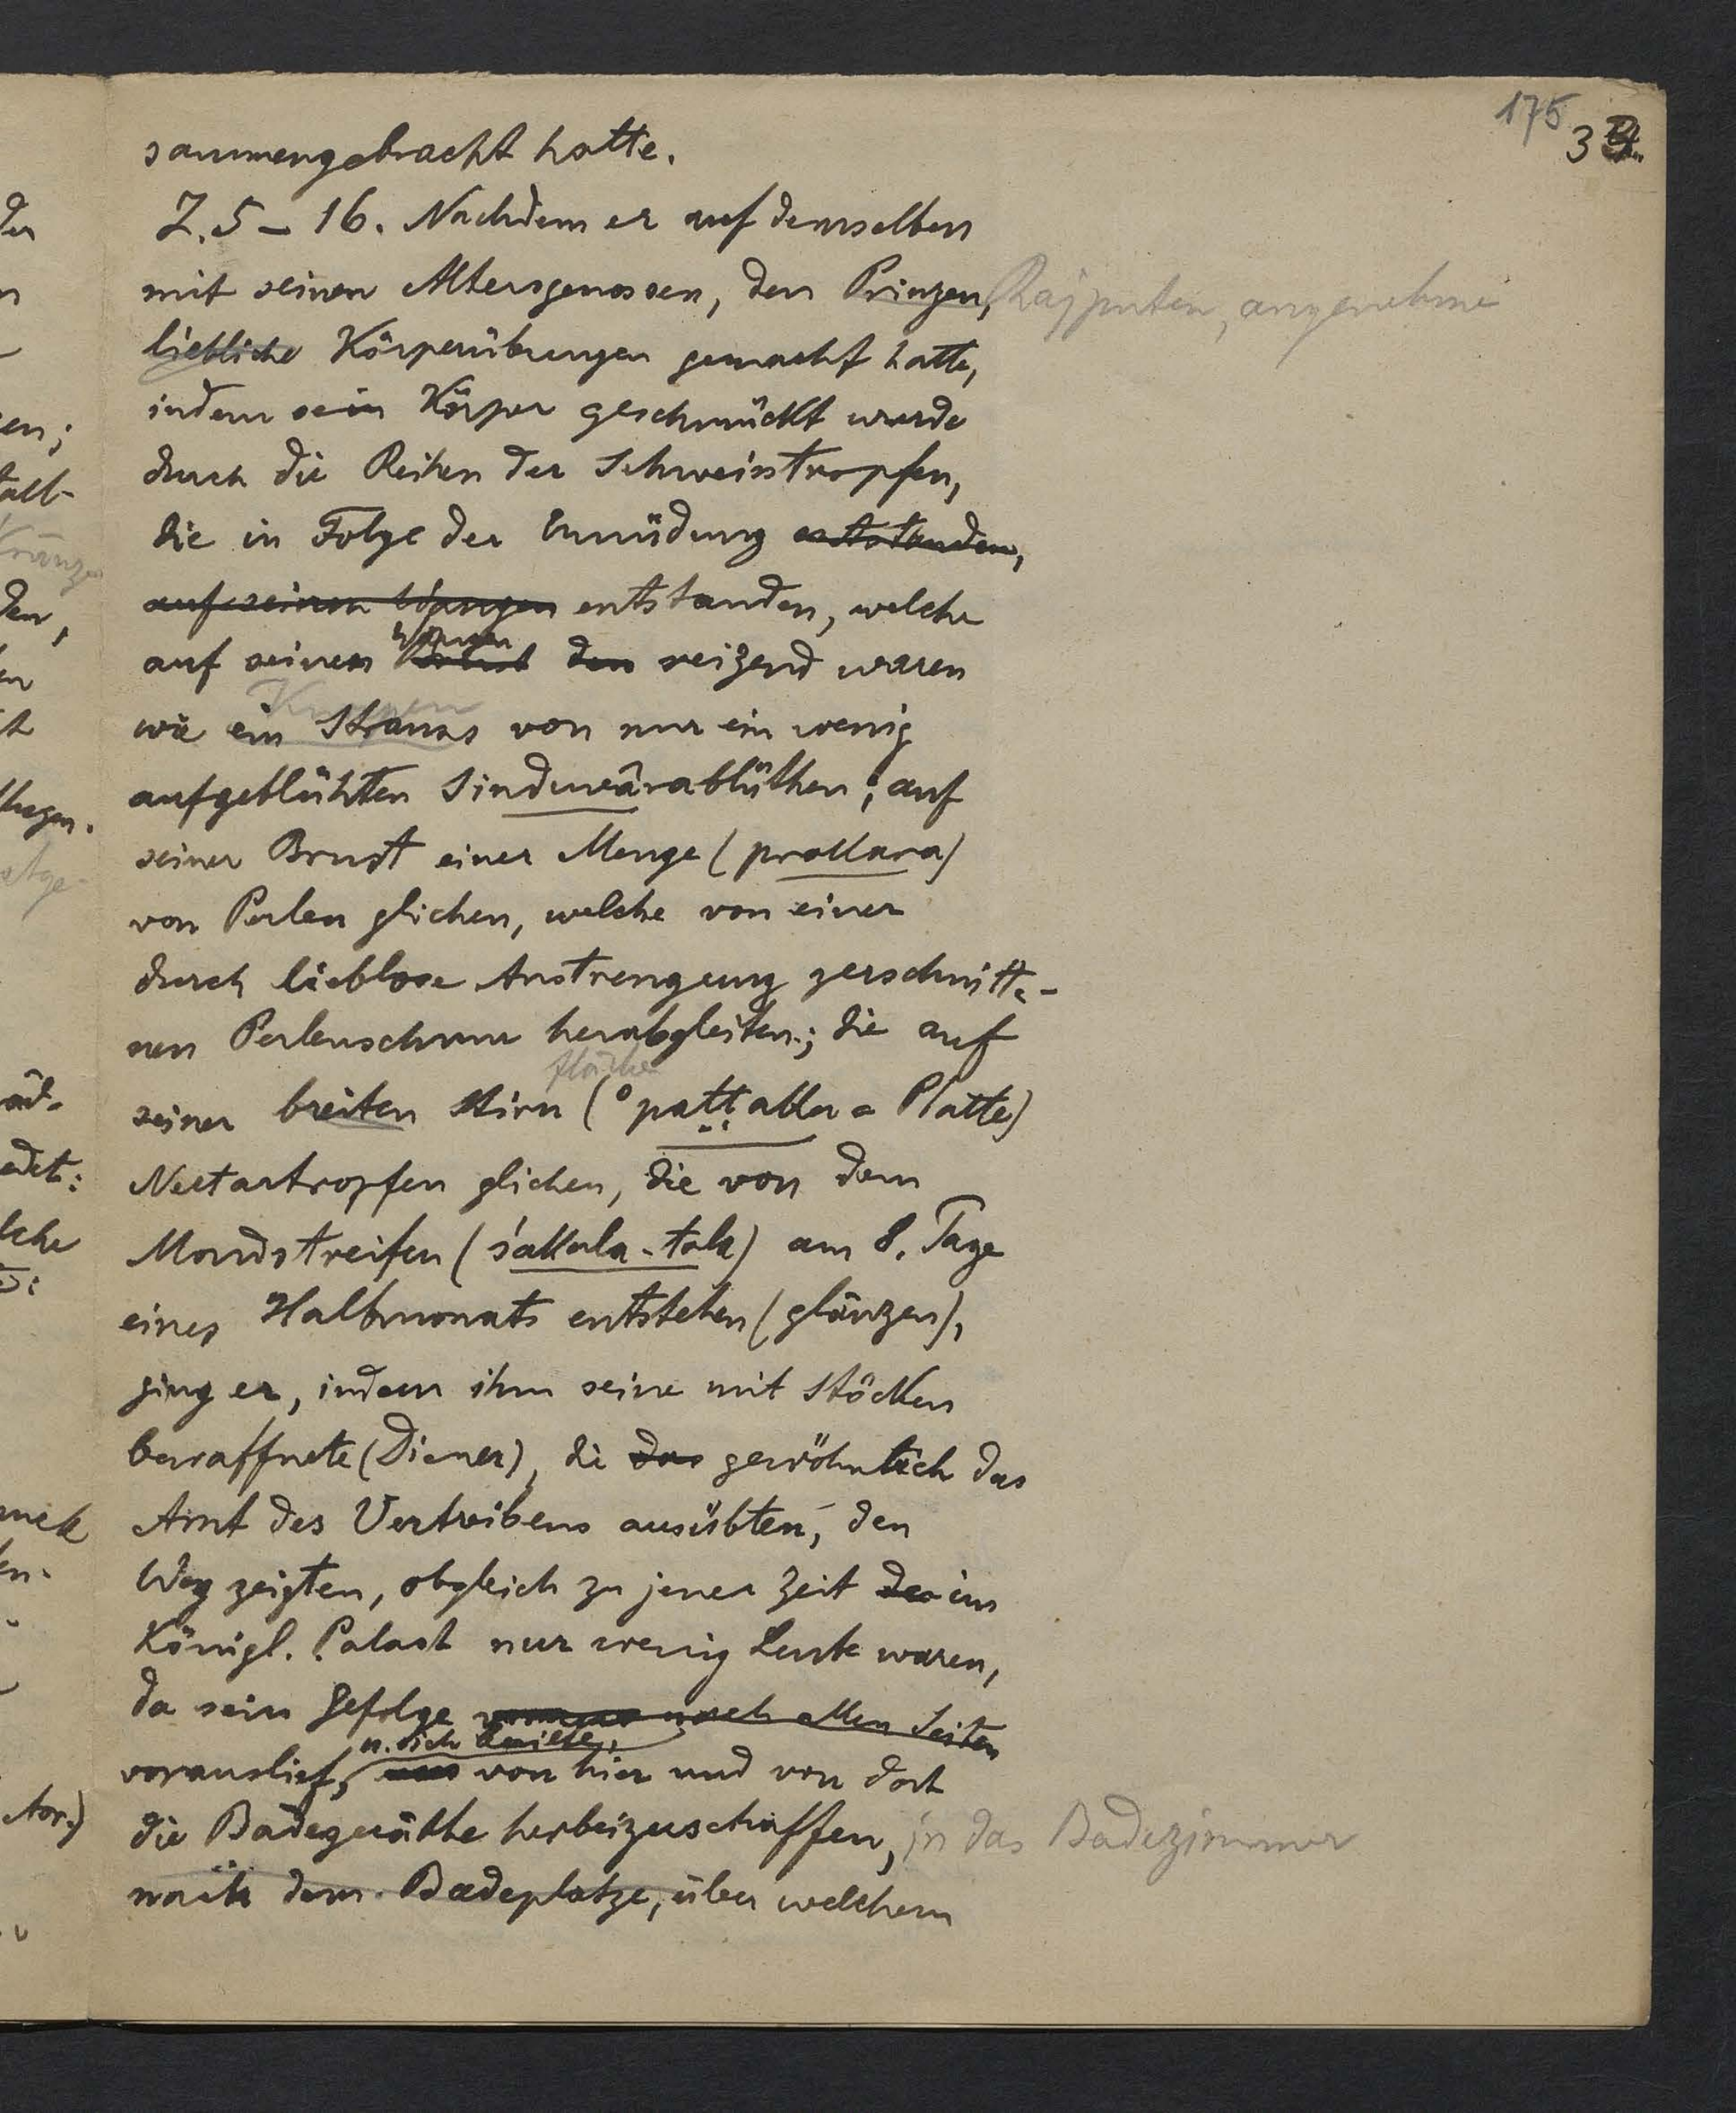 175
3
sammengebracht hatte.
Z. 5 – 16. Nachdem er auf demselben
mit seinen Altersgenossen, den Prinzen, Rajputen, angenehme
liebliche Körperübungen gemacht hatte,
indem sein Körper geschmückt wurde
durch die Reihen der Schweisstropfen,
die in Folge der Ermüdung entstanden,
auf seinen Wangen entstanden, welche
Wangen
auf seinen den reizend waren
Knospen
wie ein Strauss von nur ein wenig
aufgeblühten Sinduvârablüthen; auf
seiner Brust einer Menge (prakara)
von Perlen glichen, welche von einer
durch lieblose Anstrengung zerschnitte-
nen Perlenschnur herabgleiten; die auf
fläche
seiner breiten Stirn (°paṭṭaka = Platte)
Nectartropfen glichen, die von dem
Mondstreifen (śakala-tala) am 8. Tage
eines Halbmonats entstehen (glänzen),
ging er, indem ihm seine mit Stöcken
bewaffnete (Diener), die das gewöhnlich das
Amt des Vertreibens ausübten, den
Weg zeigten, obgleich zu jener Zeit der im
Königl. Palast nur wenig Leute waren,
da sein Gefolge nach allen Seiten
u. sich beeilte,
vorauslief, von hier und von dort
die Badegeräthe herbeizuschaffen, in das Badezimmer
nach dem Badeplatze, über welchem